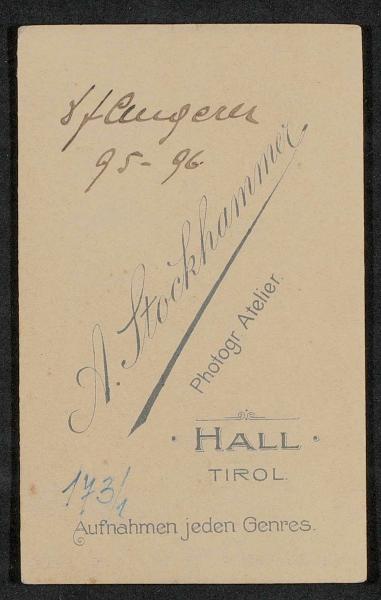 Angerer
95-96
A. Stockhammer
Photogr Atelier.
· HALL ·
TIROL.
173/1
Aufnahmen jeden Genres.